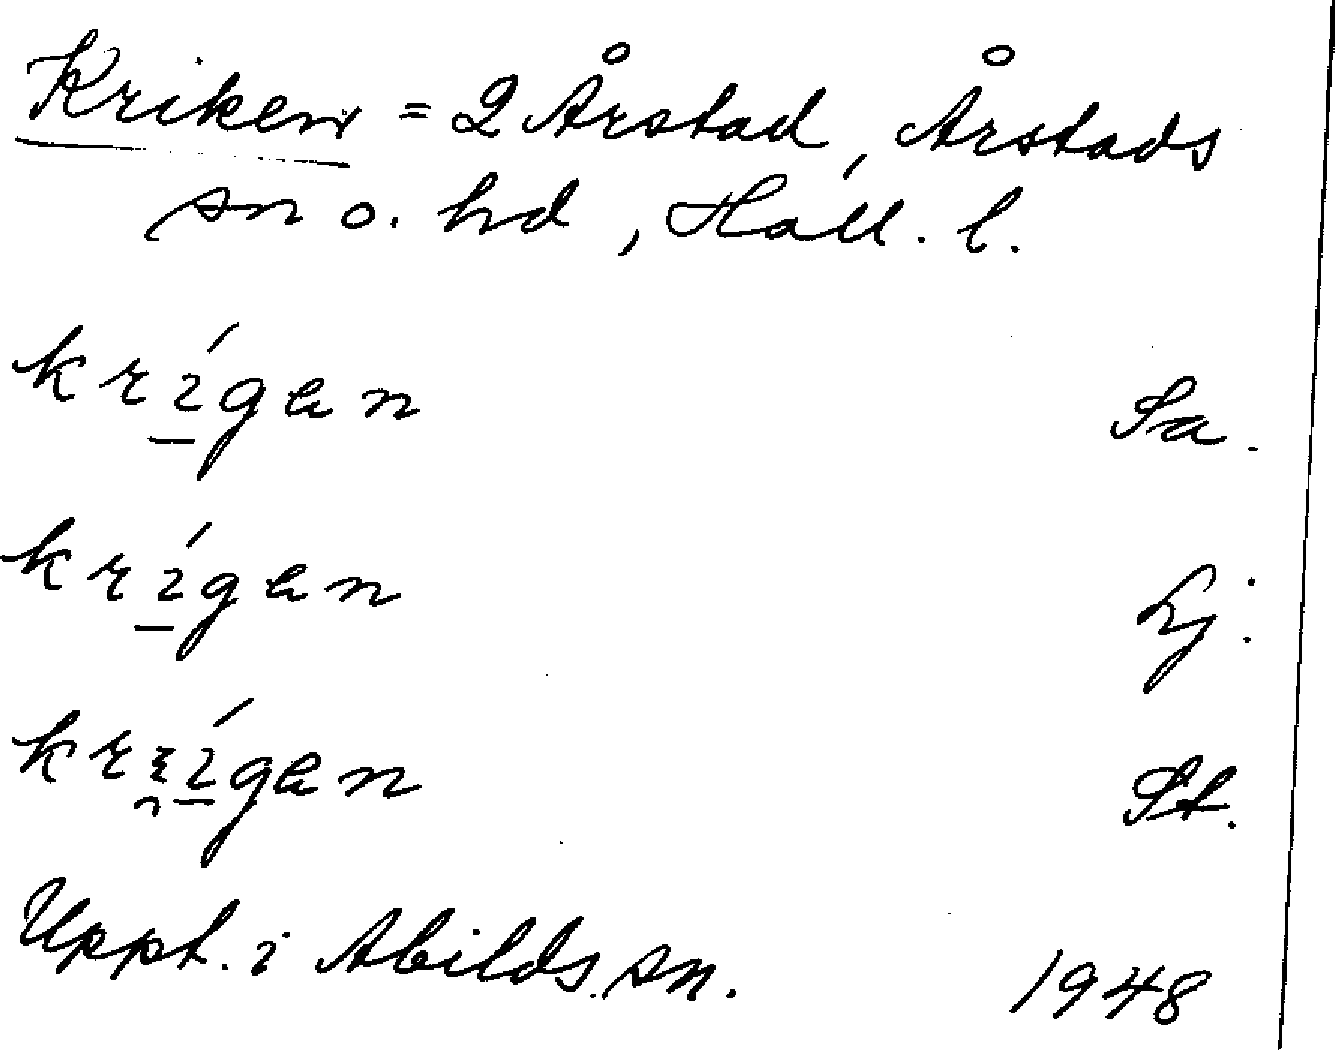 Kriken = 2 Årstad, Årstads
sn o. hd, Hall. l.
krígen Sa.
krígen Lj.
krξígen St.
Uppt. i Abilds sn. 1948